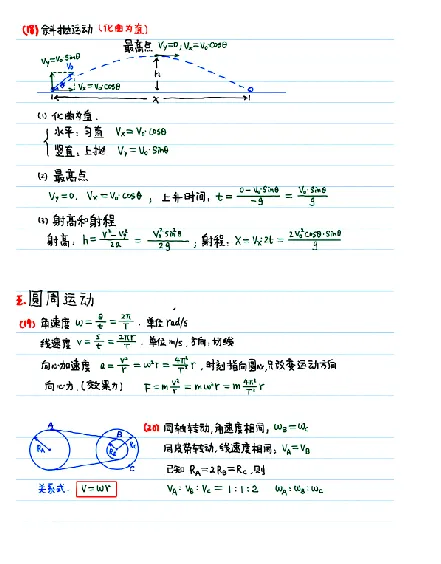 (18) 斜抛运动 (化曲为直)
最高点 Vy=0, Vx=V₀·cosθ
Vy=V₀·sinθ
V₀
h
θ Vx=V₀·cosθ
x
(1) 化曲为直.
水平: 匀直 Vx=V₀·cosθ
竖直: 上抛 Vy=V₀·sinθ
(2) 最高点
Vy=0. Vx=V₀·cosθ ; 上升时间: t=(0-V₀·sinθ)/(-g)=(V₀·sinθ)/g
(3) 射高和射程
射高: h=(V²-V₀²)/2a=(V₀²·sin²θ)/2g ; 射程: X=Vx·2t=(2V₀²cosθ·sinθ)/g
五.圆周运动
(19) 角速度 ω=θ/t=2π/T . 单位 rad/s
线速度 v=s/t=2πr/T . 单位 m/s. 方向: 切线
向心加速度 a=v²/r=ω²r=(4π²/T²)r , 时刻指向圆心, 只改变运动方向
向心力. (效果力) F=m(v²/r)=mω²r=m(4π²/T²)r
(20) 同轴转动, 角速度相同, ωB=ωC
A B RA RB RC C
同皮带转动, 线速度相同, VA=VB
已知 RA=2RB=RC, 则
关系式: V=ωr VA:VB:VC=1:1:2 ωA:ωB:ωC